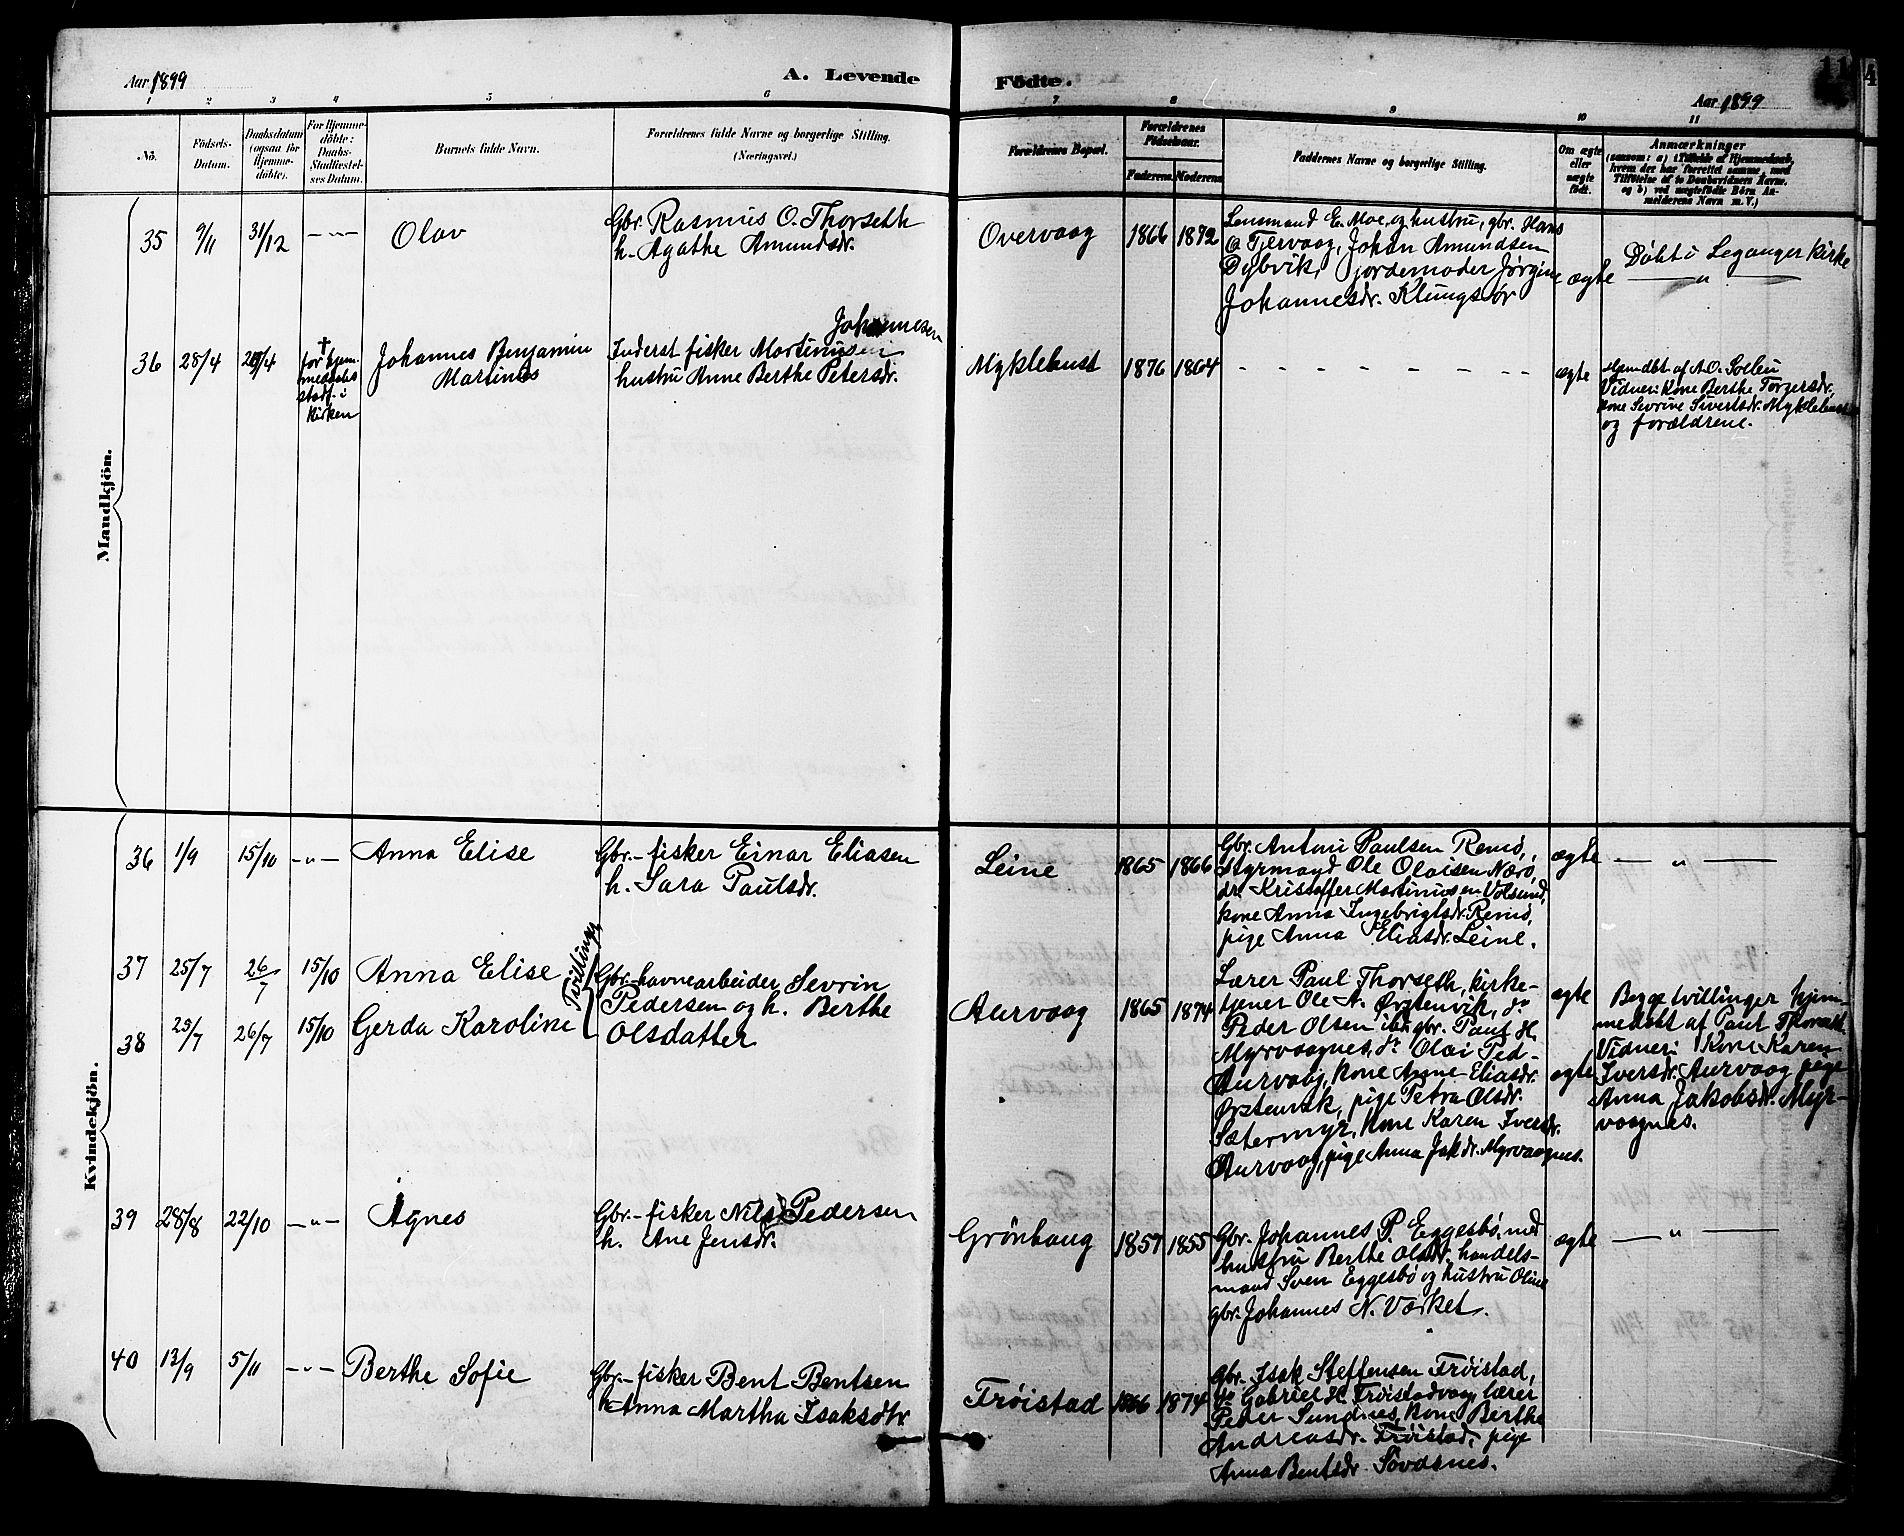 Aar 1899
A. Levende
Födte.
Aar 1899
11
4
1 2 3 4 5 6 7 8 9 10 11
No.
Födsels-
Datum.
Daabsdatum
(ogsaa for
Hjemme-
döbte).
For Hjemme-
döbte:
Daabs-
Stadfæstel-
ses Datum.
Barnets fulde Navn.
Forældrenes fulde Navne og borgerlige Stilling.
(Næringsvei.)
Forældrenes Bopæl.
Forældrenes
Födselsaar.
Faderens. Moderens.
Faddernes Navne og borgerlige Stilling.
Om ægte
eller
uægte
født.
Anmærkninger
(saasom: a) i Tilfælde af Hjemmedaab,
hvem der har forrettet samme, med
Tilföielse af to Daabsvidners Navne,
og b) ved uægtefödte Börn An-
melderens Navn m. V.)
Mandkjön.
35 9/11 31/12 — " — Olav
Gbr. Rasmus O. Thorseth
h. Agathe Amundsdr.
Overvaag 1866 1872
Lensmand E. Moe, og hustru, gbr. Hans
O Tjervaag, Johan Amundsen
Dybvik, jordemoder Jørgine
Johannesdr. Klungsör
ægte
Døbt i Leganger Kirke
— " —
36 28/4 29/4
† for hjem-
medaabs
stadf. i
Kirken
Johannes Benjamin
Martines
Johannesen
Inderst fisker Martinus
hustru Anne Berthe Petersdr.
Myklebust 1876 1864 - - - - - - - - ægte
Hjemdbt af A.O. Solli
Vidner: Kone Berthe Torgersdr,
kone Sevrine Sivertsdr. Myklebust
og forældrene.
Kvindekjön.
36 1/9 15/10 — " — Anna Elise
Gbr.- fisker Einar Eliasen
h. Sara Paulsdr.
Leine 1865 1866
Gbr. Antoni Paulsen Remö,
Styrmand Ole Olaisen Nærø,
do Kristoffer Martinusen Volsund,
kone Anna Ingebrigtsdr. Remö,
pige Anna Eliasdr. Leine.
ægte — " —
37 25/7 26/7 15/10 Anna Elise
Tvillinger
38 25/7 26/7 15/10 Gerda Karoline
Gbr.- havnearbeider Sevrin
Pedersen og h. Berthe
Olsdatter
Aurvaag 1865 1874
Lærer Paul Thorseth, kirke-
tjener Ole N. Ørstenvik, do
Peder Olsen ibd, gbr. Paul H.
Myrvaagnes, do Olai Ped-
Aurvaag, kone Anne Eliasdr.
Ørstenvik, pige Petra Olsdr.
Sætermyr, kone Karen Iversdr.
Aurvaag, pige Anna Jakdr. Myrvaagnes.
ægte
ægte
Begge tvillinger hjem-
medøbt af Paul Thorseth
Vidner: Kone Karen
Iversdr. Aurvaag pige
Anna Jakobsdr. Myr-
vaagnes.
39 28/8 22/10 — " — Agnes
Gbr.- fisker Nils Pedersen
h. Ane Jensdr.
Grönhaug 1857 1855
Gbr. Johannes P. Eggesbö, med
hustru Berthe Olsdr. handels-
mand Sven Eggesbö og hustru Oline
gbr. Johannes N. Værket.
ægte — " —
40 13/9 5/11 — " — Berthe Sofie
Gbr.- fisker Bent Bentsen
h. Anna Martha Isaksdtr
Tröistad 1866 1874
Gbr. Isak Steffensen Tröistad,
do Gabriel H. Tröistadvaag, lærer
Peder Sundnes, kone Berthe
Andreasdr. Tröistad, pige
Anna Bentsdr. Sövdsnes.